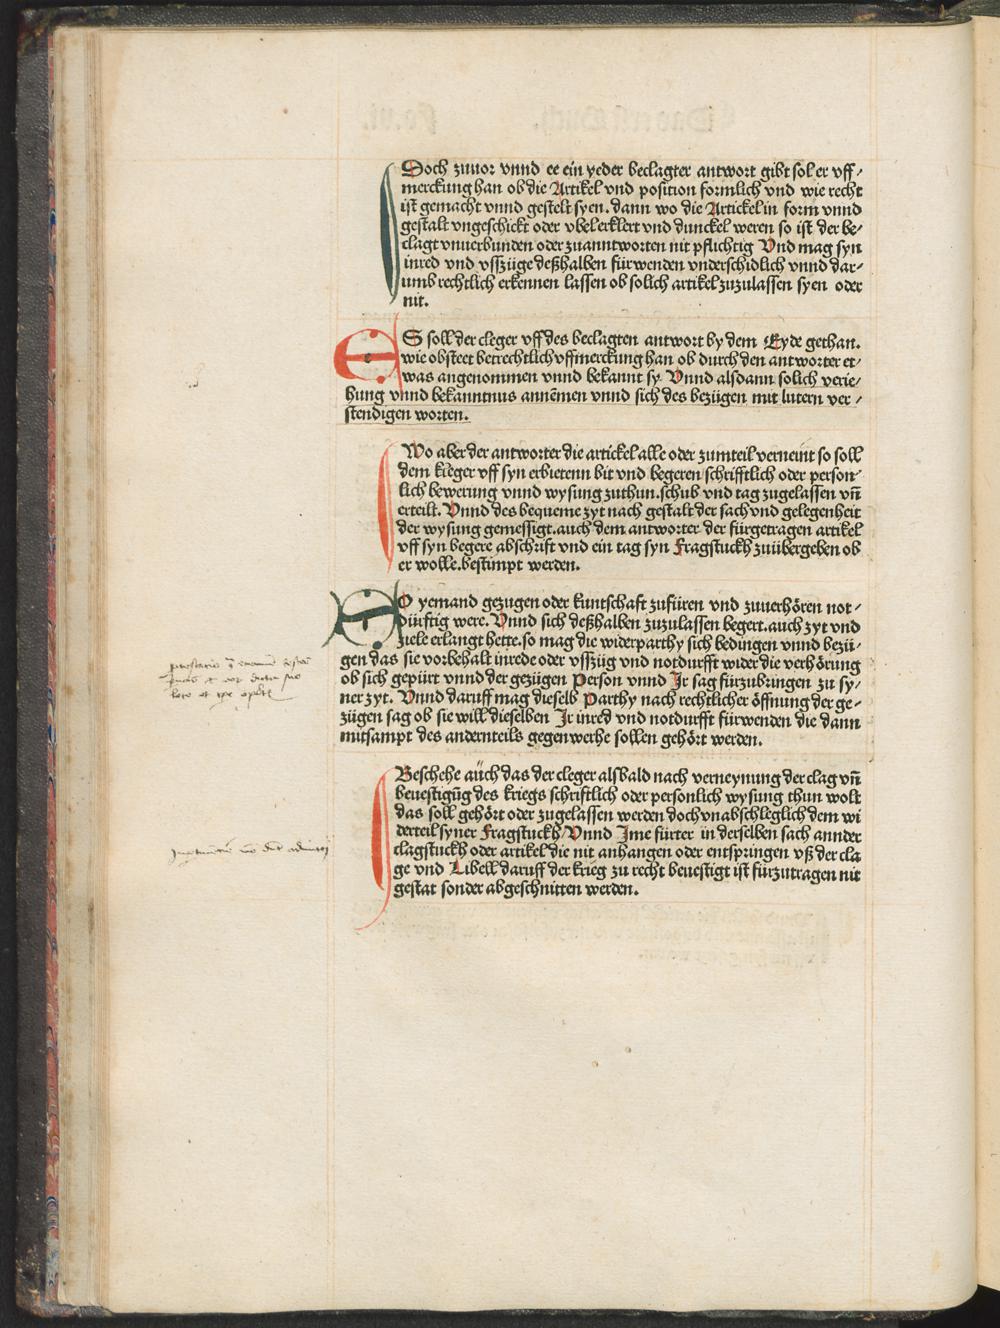 Doch zuuor vnnd ee ein yeder beclagter antwort gibt sol er vff⸗
merckung han ob die Artikel vnd position formlich vnd wie recht
ist gemacht vnnd gestelt syen. dann wo die Artickel in form vnnd
gestalt vngeschickt oder vbel erklert vnd dunckel weren so ist der be⸗
clagt vnuerbunden oder zuanntworten nit pflichtig Vnd mag syn
inred vnd vsszüge deßhalben fürwenden vnderschidlich vnnd dar⸗
umb rechtlich erkennen lassen ob solich artikel zuzulassen syen oder
nit.
ES soll der cleger vff des beclagten antwort by dem Eyde gethan.
wie obsteet betrechtlich vffmerckung han ob durch den antworter et⸗
was angenommen vnnd bekannt sy. Vnnd alsdann solich verie⸗
hung vnnd bekanntnus annemen vnnd sich des bezügen mit lutern ver⸗
stendigen worten.
Wo aber der antworter die artickel alle oder zum teil verneint so soll
dem kleger vff syn erbietenn bit vnd begeren schrifftlich oder person⸗
lich bewerung vnnd wysung zuthun. schub vnd tag zugelassen vñ
erteilt. Vnnd des bequeme zyt nach gestalt der sach vnd gelegenheit
der wysung gemessigt. auch dem antworter der fürgetragen artikel
vff syn begere abschrift vnd ein tag syn Fragstuckh zuübergeben ob
er wolle. bestimpt werden.
SO yemand gezugen oder kuntschaft zufüren vnd zuuerhören not⸗
dürftig were. Vnnd sich deßhalben zuzulassen begert. auch zyt vnd
zuele erlangt hette. so mag die widerparthy sich bedingen vnnd bezü⸗
gen das sie vorbehalt inrede oder vsszüg vnd notdurfft wider die verhörung
ob sich gepürt vnnd der gezügen Person vnnd Ir sag fürzubringen zu sy⸗
ner zyt. Vnnd daruff mag dieselb Parthy nach rechtlicher öffnung der ge⸗
zügen sag ob sie will dieselben Ir inred vnd notdurfft fürwenden die dann
mitsampt des andernteils gegenwerhe sollen gehört werden.
Beschehe auch das der cleger alsbald nach verneynung der clag vñ
beuestigũg des kriegs schriftlich oder personlich wysung thun wolt
das soll gehört oder zugelassen werden doch vnabschleglich dem wi
derteil syner Fragstuckh/ Vnnd Ime fürter in derselben sach annder
clagstuckh oder artikel die nit anhangen oder entspringen vß der cla
ge vnd Libell daruff der krieg zu recht beuestigt ist fürzutragen nit
gestat sonder abgeschnitten werden.